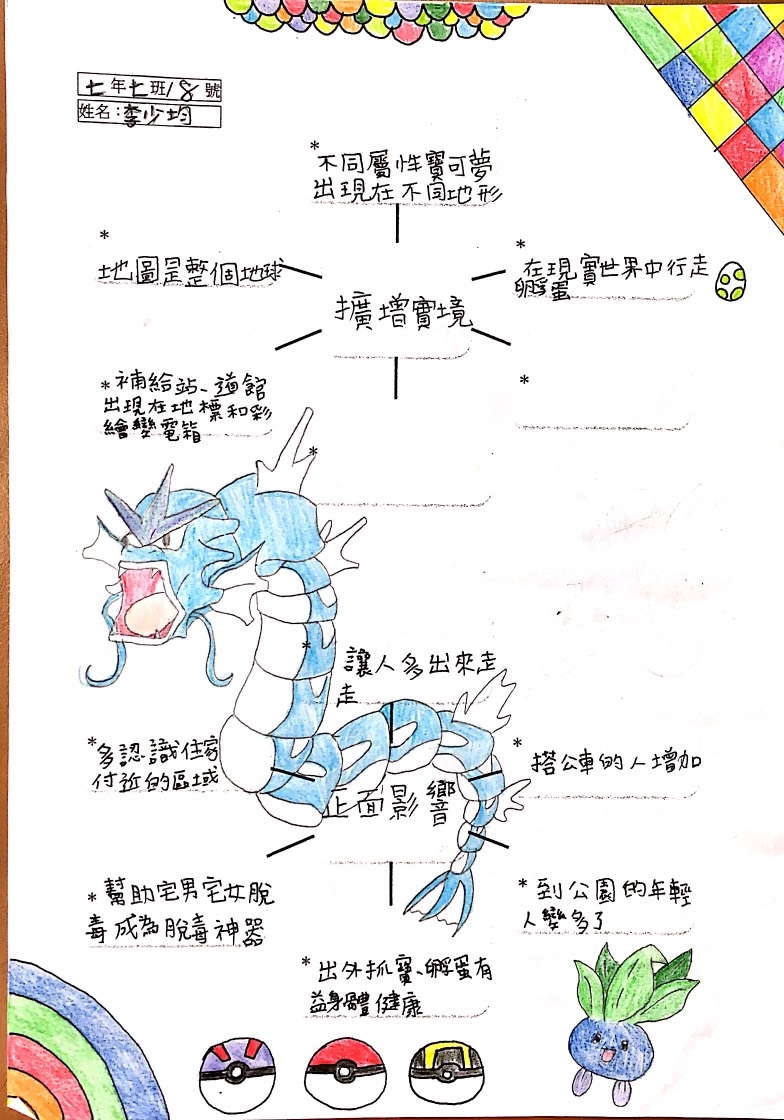 七年七班18號
姓名:李少均
*
不同屬性寶可夢
出現在不同地形
*
地圖是整個地球
*
在現實世界中行走
孵蛋
擴增實境
*補給站、道館
出現在地標和彩
繪變電箱
*
*
*
讓人多出來走
走
*多認識住家
付近的區域
*
搭公車的人增加
正面影響
*幫助宅男宅女脫
毒成為脫毒神器
*到公園的年輕
人變多了
*出外抓寶、孵蛋有
益身體健康